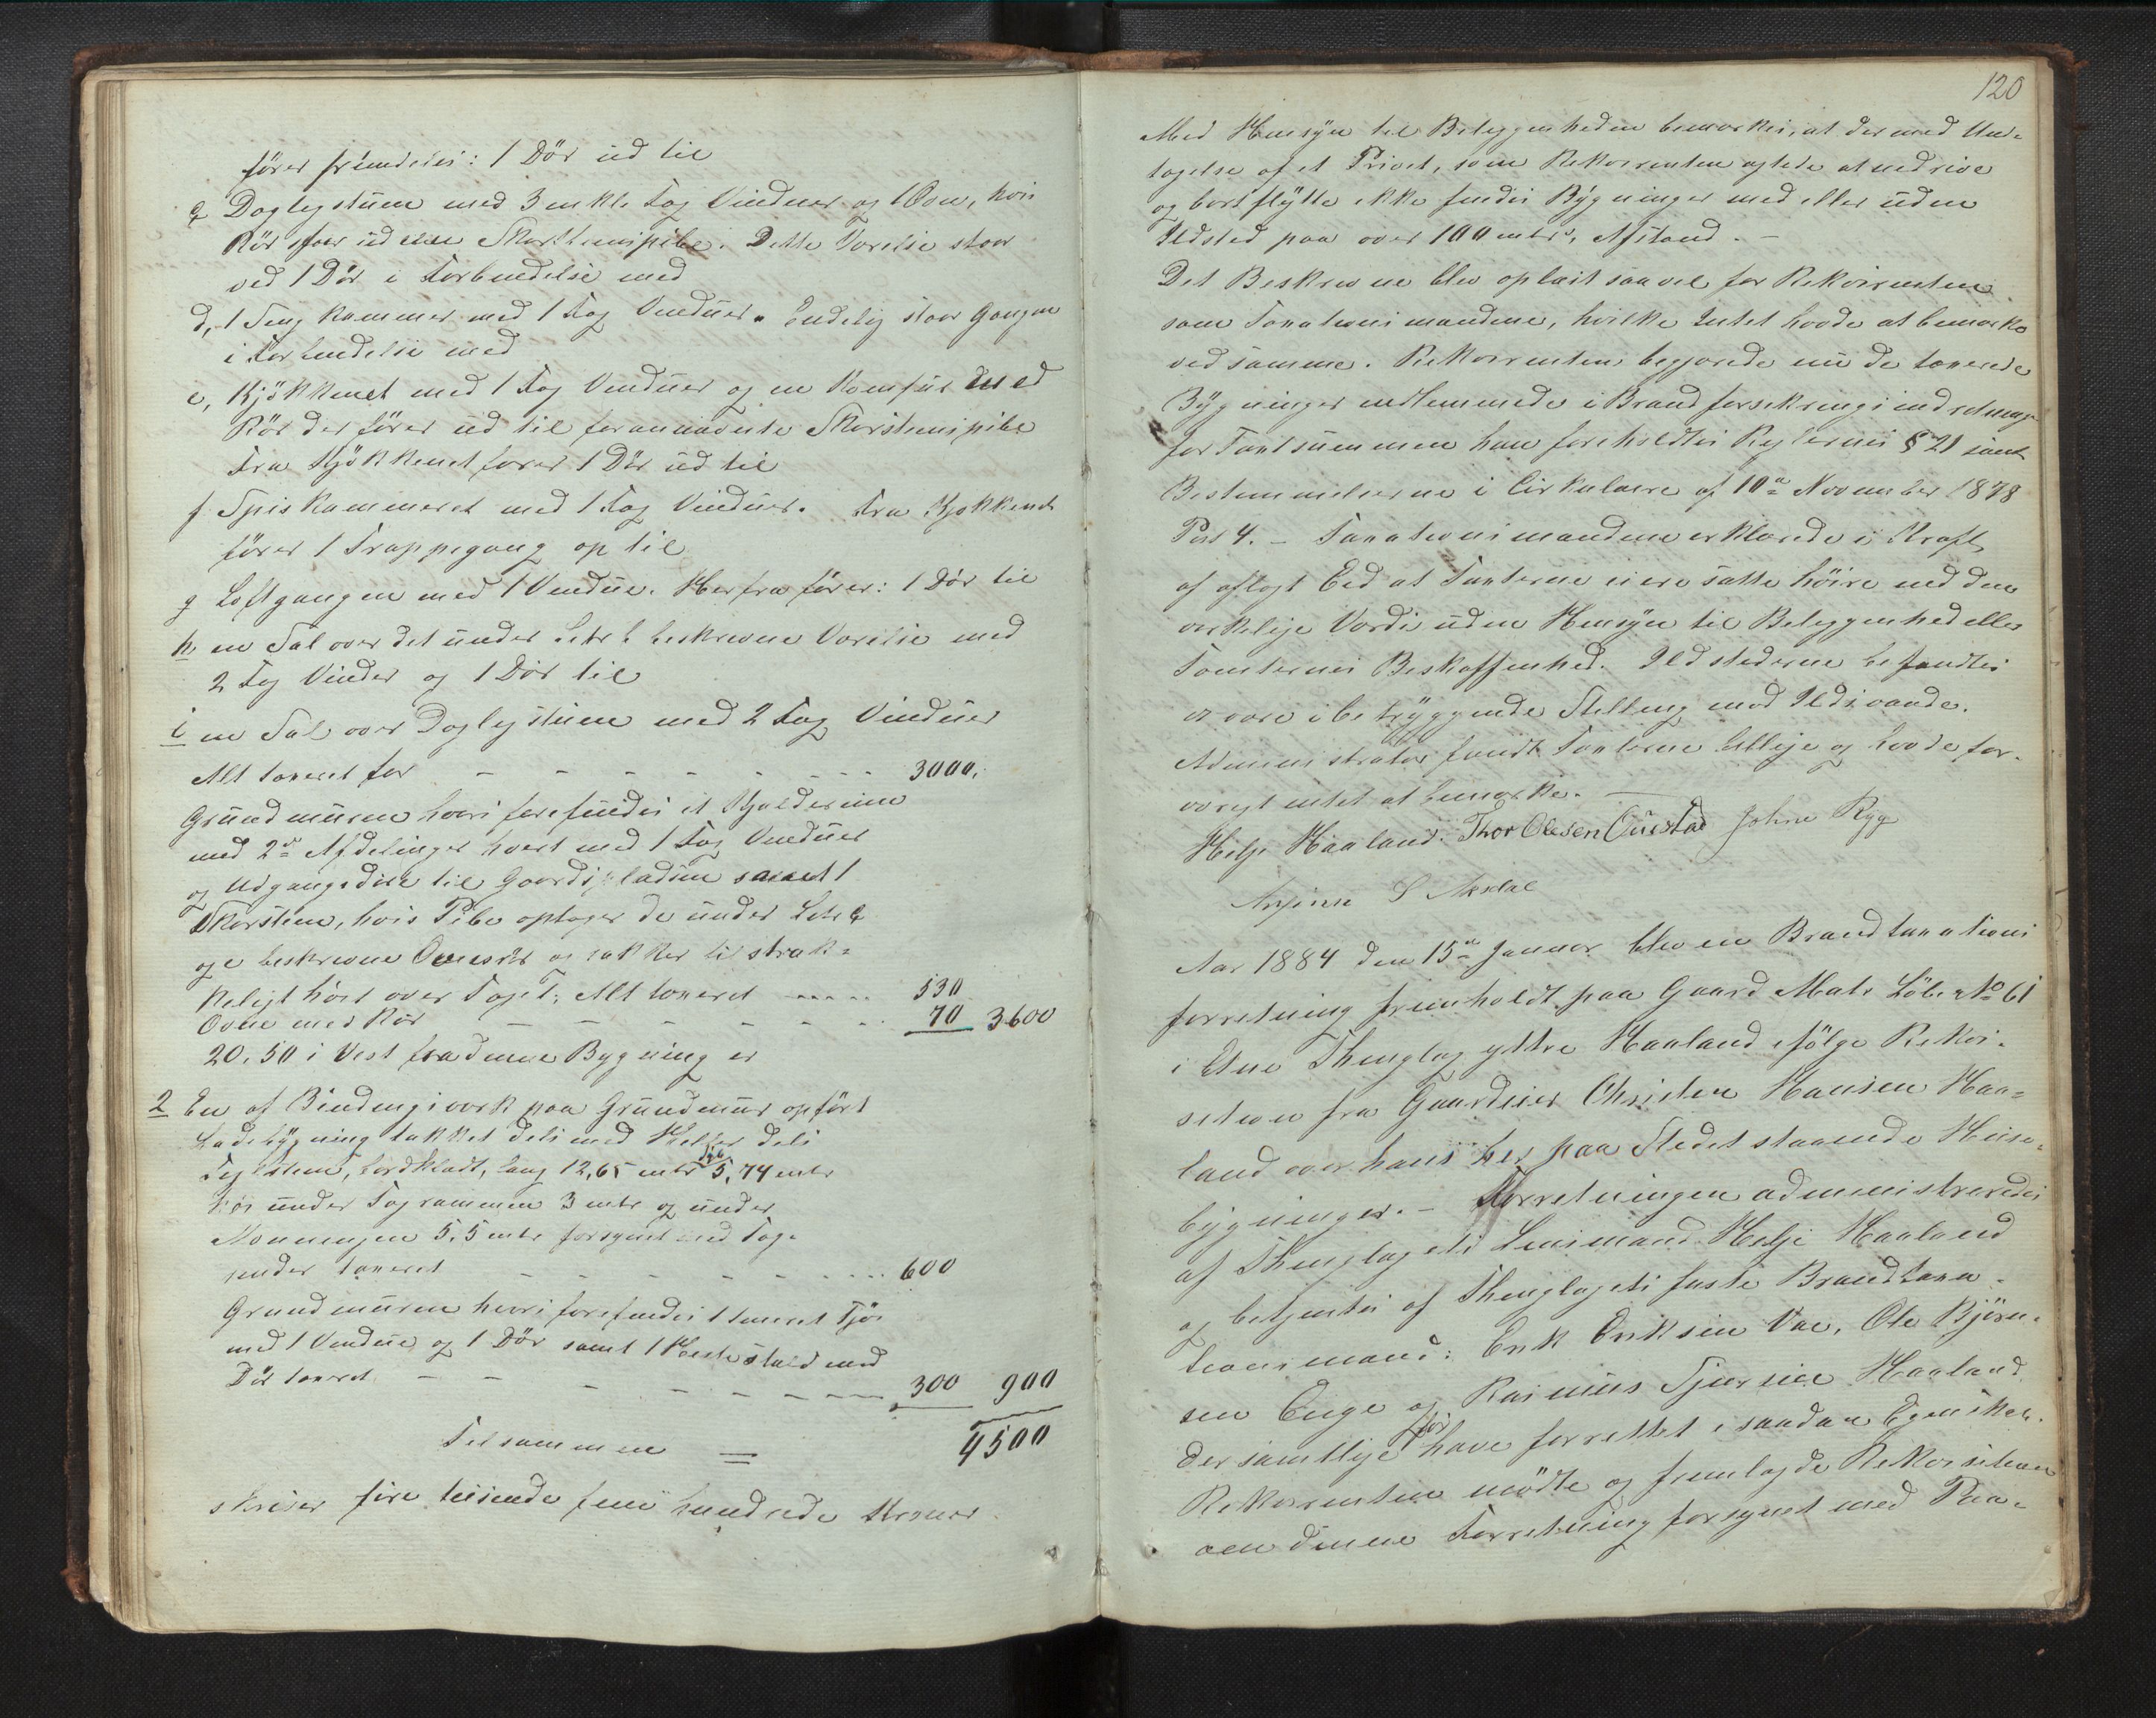 fører fremdeles: 1 Dör ud til
c Dagligstuen med 3 enkl. Fag Vinduer og 1 Ovn, hvis
Rör gaar ud i en Skorstenspibe. Dette Værelse staar
ved 1 Dör i Forbindelse med
d, 1 Sengkammer med 1 Fag Vinduer. Endelig staar Gangen
i Forbindelse med
e, Kjökkenet med 1 Fag Vinduer og en Komfur med
Rör der förer ud til forannævnte Skorstenspibe
Fra Kjökkenet förer 1 Dör ud til
f Spiskammeret med 1 Fag Vinduer. Fra Kjökkenet
förer 1 Trappegang op til
g Loftgangen med 1 Vindue. Herfra förer: 1 Dör til
h en Sal over det under Litr b beskrevne Værelse med
2 Fag Vinder og 1 Dör til
i en Sal over Dagligstuen med 2 Fag Vinduer
Alt taxeret for - - - - - - - - 3000.
Grundmuren hvori forefindes et Kjælderrum
med 2de Afdelinger hvert med 1 Fag Vinduer
og Udgangsdöre til Gaardspladsen samt 1
Skorsten, hvis Pibe optager de under Litr c
og e beskrevne Ovnsrör og rækker tilstræk-
keligt höit over Taget. Alt taxeret ----- 530
Ovne med Rör - - - - - - - 70 3600
20.50 i Vest fra denne Bygning er
2 En af Bindingsværk paa Grundmur opfört
Ladebygning takket dels med Heller dels
Teglsten, bordklædt, lang 12,65 mtr dyb 5,74 mtr
höi under Tagrammen 3 mtr og under
Mønningen 5,5 mtr forsynet med Tag-
render taxeret - - - - - - - - - 600
Grundmuren hvori forefindes 1 Fjös
med 1 Vindue og 1 Dör samt 1 Hestestald med
Dör taxeret - - - - - - - - 300 900
Tilsammen = 4500
skriver fire tusinde fem hundrede Kroner.
120
Med Hensyn til Beliggenheden bemærkes, at der med Und-
tagelse af et Privet, som Rekvirenten agtede at nedrive
og bortflytte ikke findes Bygninger med eller uden
Ildsted paa over 100 mtrs. Afstand. -
Det Beskrevne blev oplæst saavel for Rekvirenten
som Taxationsmændene, hvilke Intet havde at bemærke
ved samme. Rekvirenten begjærede nu de taxerede
Bygninger indlemmede i Brandforsikringsindretningen
for Taxtsummen han foreholdtes Reglernes § 21 samt
Bestemmelserne i Cirkulære af 10de November 1878
Post 4. - Taxationsmændene erklærede i Kraft
af aflagt Eed at Taxterne ei ere satte höire end den
virkelige Værdi uden Hensyn til Beliggenhed eller
Tomternes Beskaffenhed. Ildstederne befandtes
at være i betryggende Stilling mod Ildsvaade.
Administrator fandt Taxterne billige og havde for-
övrigt intet at bemærke. -
Helje Haaland. Thor Olesen Östad John Ryg
S Aksdal
Aar 1884 den 15de Januar blev en Brandtaxations
forretning fremholdt paa Gaard Matr Löbe No 61
i Etne Thinglag yttre Haaland ifölge Rekvi-
sition fra Gaardeier Christen Hansen Haa-
land over hans her paa Stedet staaende Huse-
bygninger. - Forretningen administreredes
af Thinglagets Lensmand Helje Haaland
og betjentes af Thinglagets faste Brandtaxa-
tionsmænd: Erik Eriksen Vae, Ole Bjørn-
sen Enge og Rasmus Haaland
der samtlige för have forrettet i saadan Egenskab.
Rekvirenten mödte og fremlagde Rekvisition
om denne Forretning forsynet med Paa-